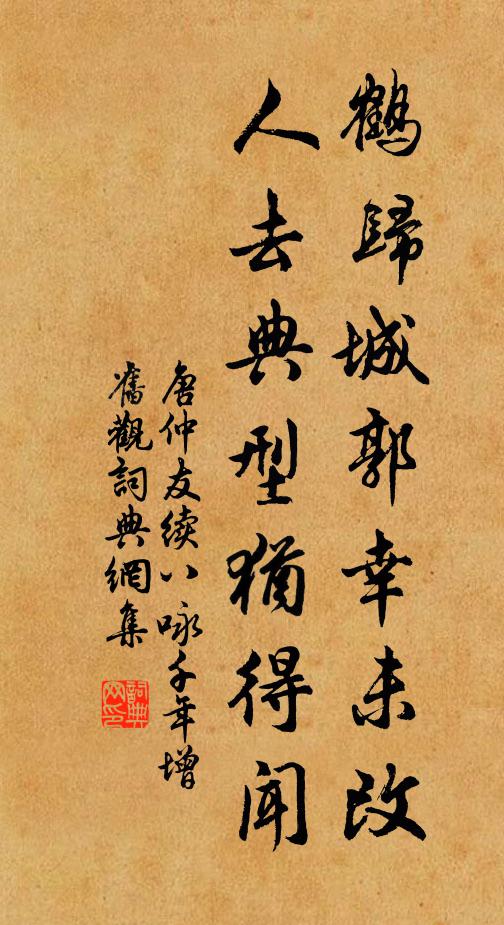 鶴歸城郭幸未改
人去典型猶得聞
唐仲友续八咏千年增
舊觀詞典網集
詞典
网印